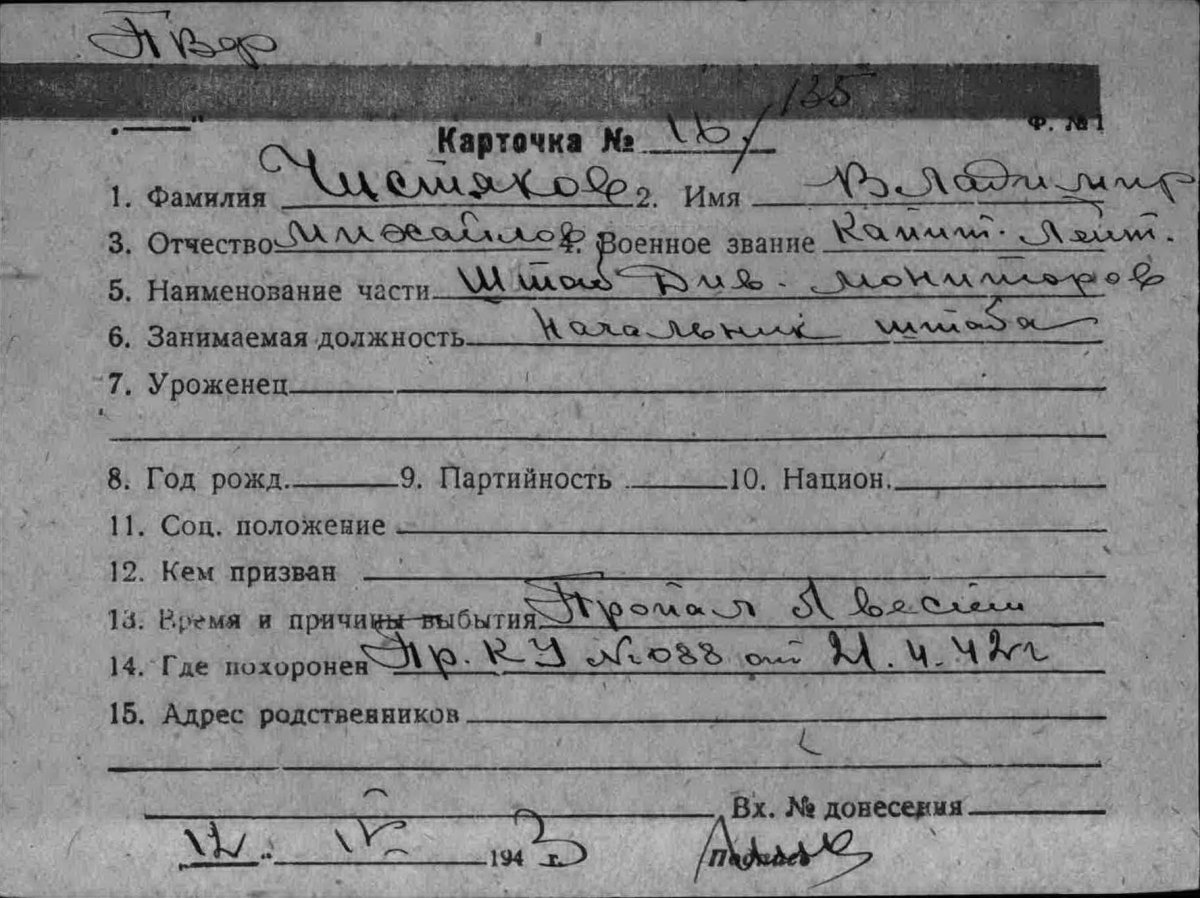 ПВдр
Карточка № 16/135 Ф. №1
1. Фамилия Чистяков 2. Имя Владимир
3. Отчество Михайлов 4. Военное звание Капит. Лейт.
5. Наименование части Штаб Див. мониторов
6. Занимаемая должность Начальник штаба
7. Уроженец
8. Год рожд. 9. Партийность 10. Национ.
11. Соц. положение
12. Кем призван
13. Время и причины выбытия Пропал
14. Где похоронен Пр. КУ № 088 от 21.4.42 г
15. Адрес родственников
Вх. № донесения
„12" 1943 г. Подпись